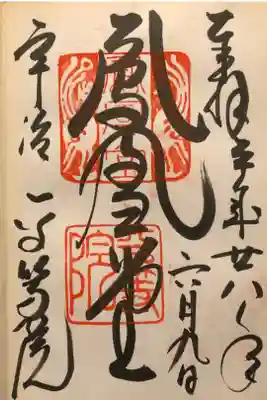 奉拝平成廿八年
六月九日
鳳凰堂
宇治平等院